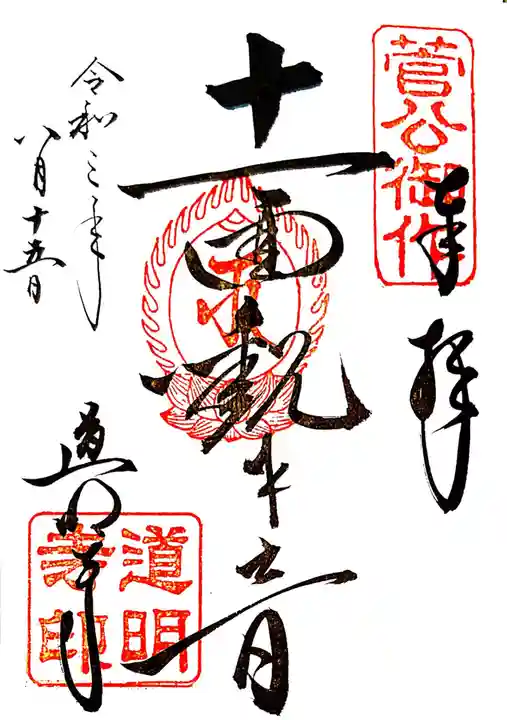 菅公御作
奉拝
十一面観世音
令和三年
八月十五日
道明寺
道明寺印